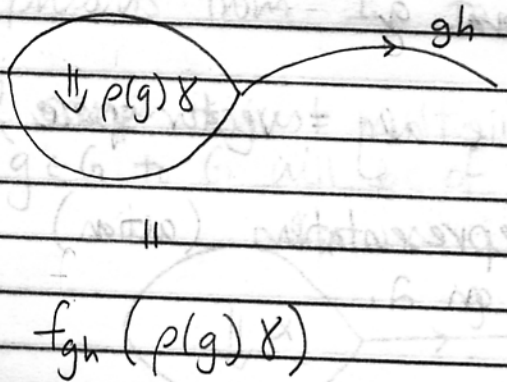 gh
⇓ ρ(g)γ
||
f_gh (ρ(g)γ)